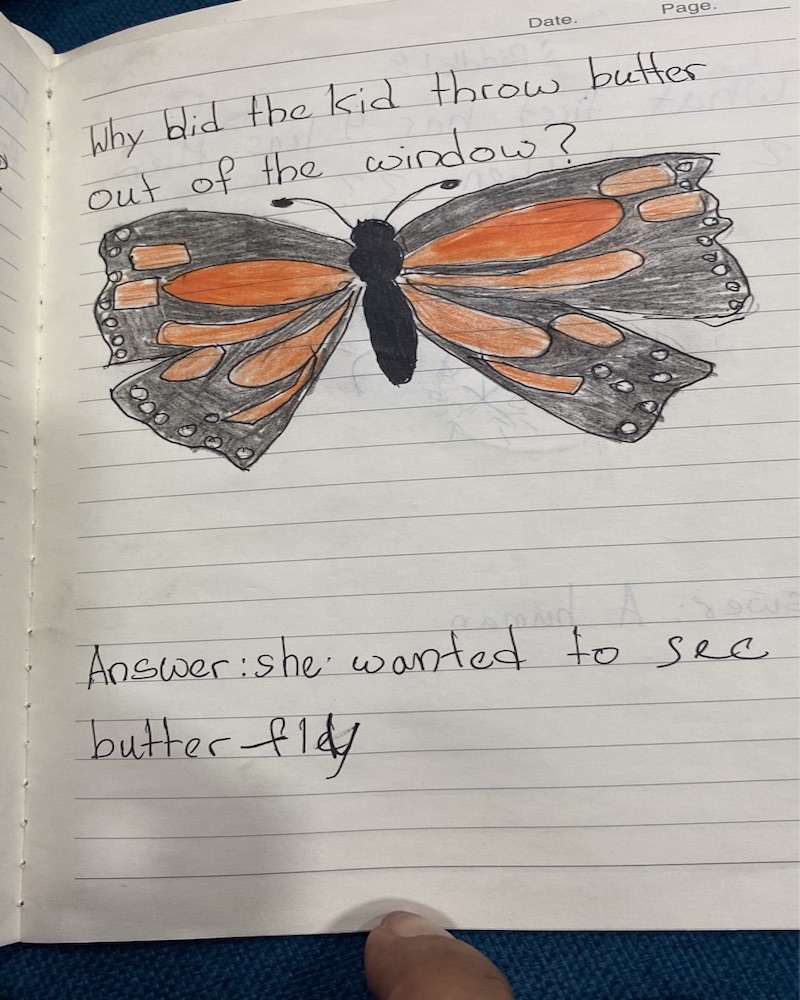 Date. Page.
Why did the kid throw butter
out of the window?
Answer: she wanted to see
butter fly